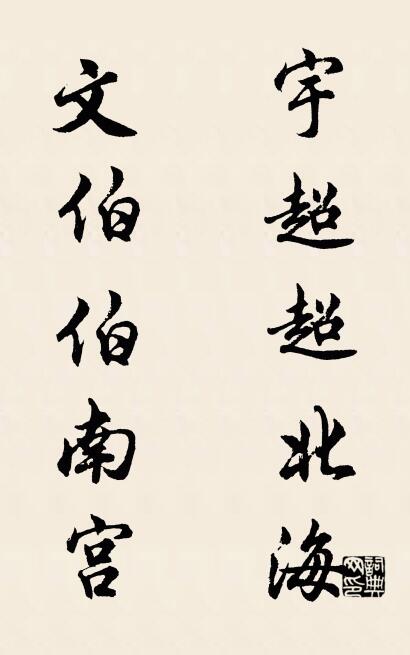 宇超超北海
文伯伯南宫
詞典網印